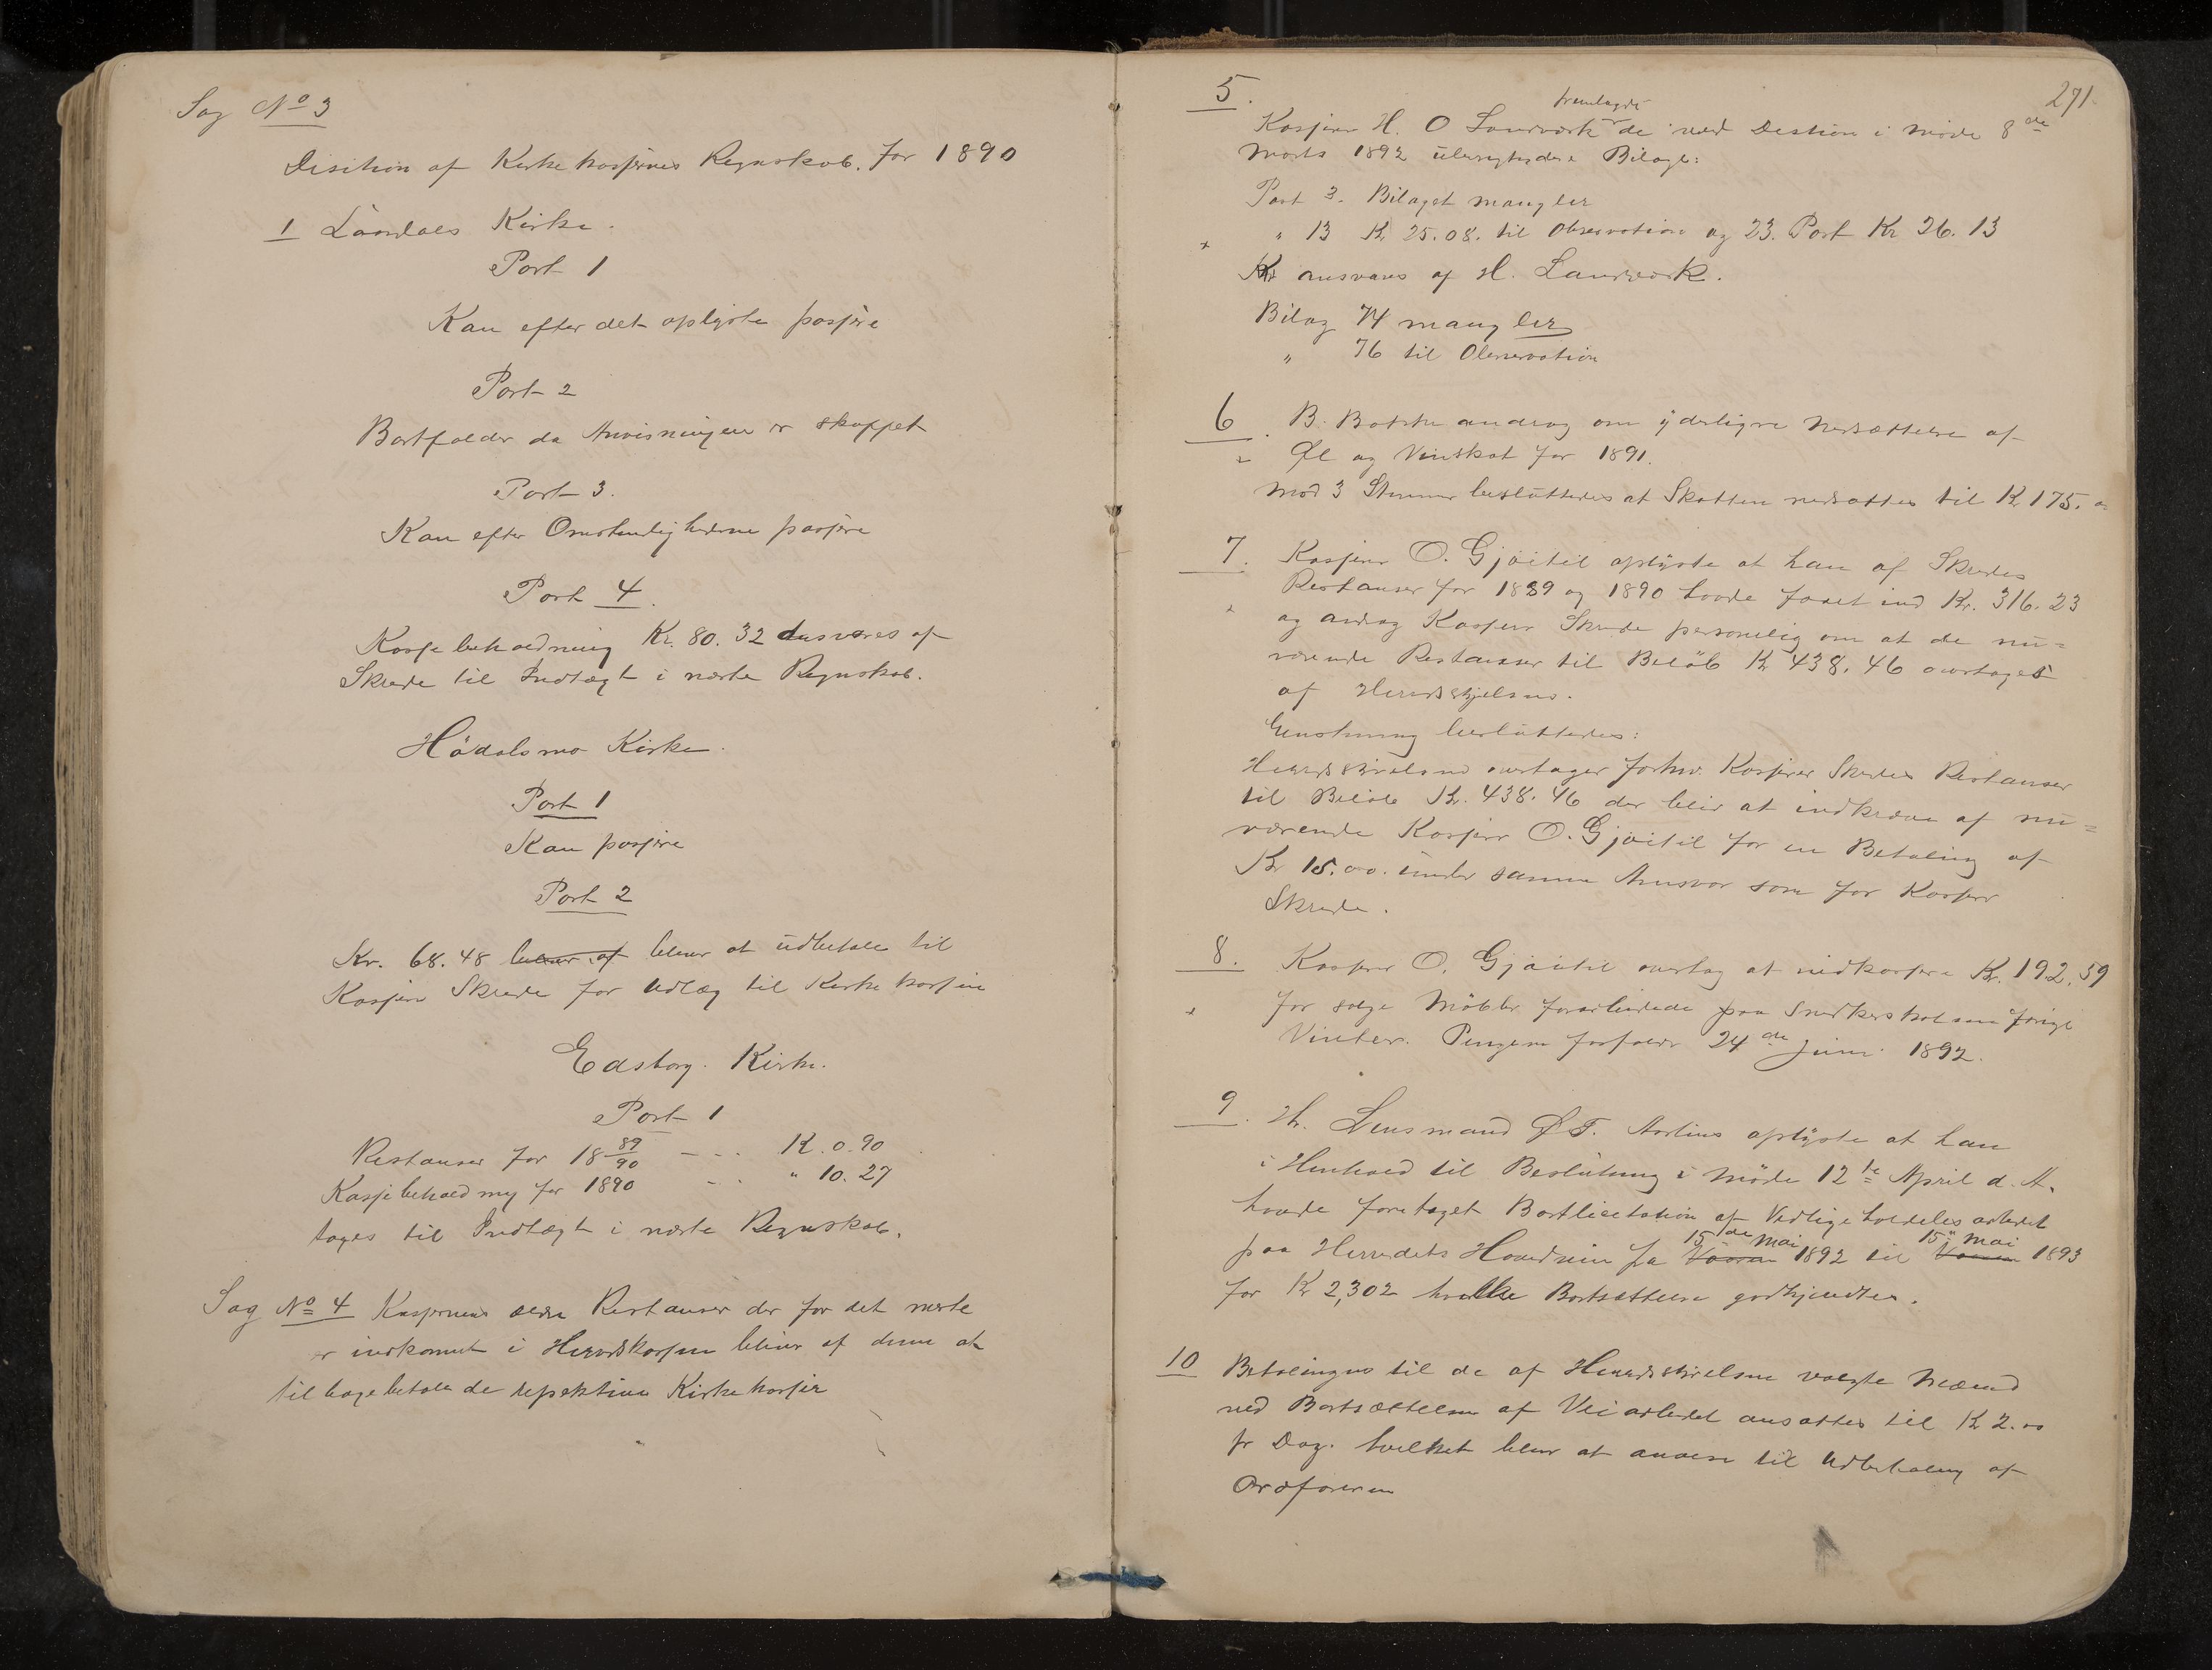 Sag No 3
Disition af Kirkekassjerernes Regnskab. for 1890
1 Laardals Kirke.
Post 1
Kan efter det oplyste passjere
Post 2
Bortfalder da Anvisningen er skaffet
Post 3.
Kan efter Omstendighederne passjere
Post 4.
Kassebeholdning Kr. 80.32 ansvares af
Skrede til Indtægt i næste Regnskab.
Hödalsmo Kirke.
Post 1
Kan passjere
Post 2
Kr. 68.48 bliver af bliver at udbetale til
Kasjerer Skrede for Udlæg til Kirkekassjere
Edsborg. Kirke.
Post 1
Restanser for 18 89/90 - - - K. 0.90
Kassebeholdning for 1890 - - - " 10.27
tages til Indtægt i næste Regnskab.
Sag No 4 Kasjerernes ældre Restanser der for det meste
er indkomet i Herredskassen bliver af denne at
tilbagebetale de respektive Kirkekasser
271.
5.
fremlagde
Kasjerer H. O Landværk de ved Desition i møde 8de
Marts 1892 Bilage:
Post 3. Bilaget mangler
+ " 13 Kr 25.08. til Observation og 23. Post Kr 26.13
Kr ansvares af H. Landværk.
Bilag 74 mangler
" 76 til Observation
6. B. andrag om yderligere Nedsættelse af
Øl og Vinskat for 1891.
Mod 3 Stemmer besluttedes at Skatten nedsættes til Kr 175.
7. Kasjerer O. Gjöitil oplyste at han af Skredes
Restanser for 1889 og 1890 havde faaet ind Kr. 316.23
og androg Kasjerer Skrede personelig om at de nu=
værende Restanser til Beløb Kr 438.46 overtages
af Herredsstyrelsen.
Enstemmig besluttedes:
Herredsstyrelsen overtager forhv. Kasjerer Skredes Restanser
til Beløb Kr. 438.46 der blir at indkræve af nu=
værende Kasjerer O. Gjöitil for en Betaling af
Kr 15.00. under samme Ansvar som for Kasjerer
Skrede.
8. Kasjerer O. Gjöitil overtog at indkassere Kr. 192.59
+ for solgte Möbler forarbeidede paa Snedkerskolen forrige
Vinter. Pengene forfalder 24de Juni 1892.
9. Hr. Lensmand Ø T. Aarlius oplyste at han
i Henhold til Beslutning i Møde 12te April d. A.
havde foretaget Bortlicitation af Vedligeholdelsesarbeidet
15de Mai 15" Mai
paa Herredets Hovedveie fra Vaaren 1892 til Vaaren 1893
for Kr 2,302 hvilke Bortsættelse godkjendtes.
10 Betalingen til de af Herredsstyrelsen valgte Mænd
ved Bortsættelsen af Veiarbeidet ansattes til Kr 2.00
pr Dag. hvilket bliver at anvise til Udbetaling af
Ordføreren